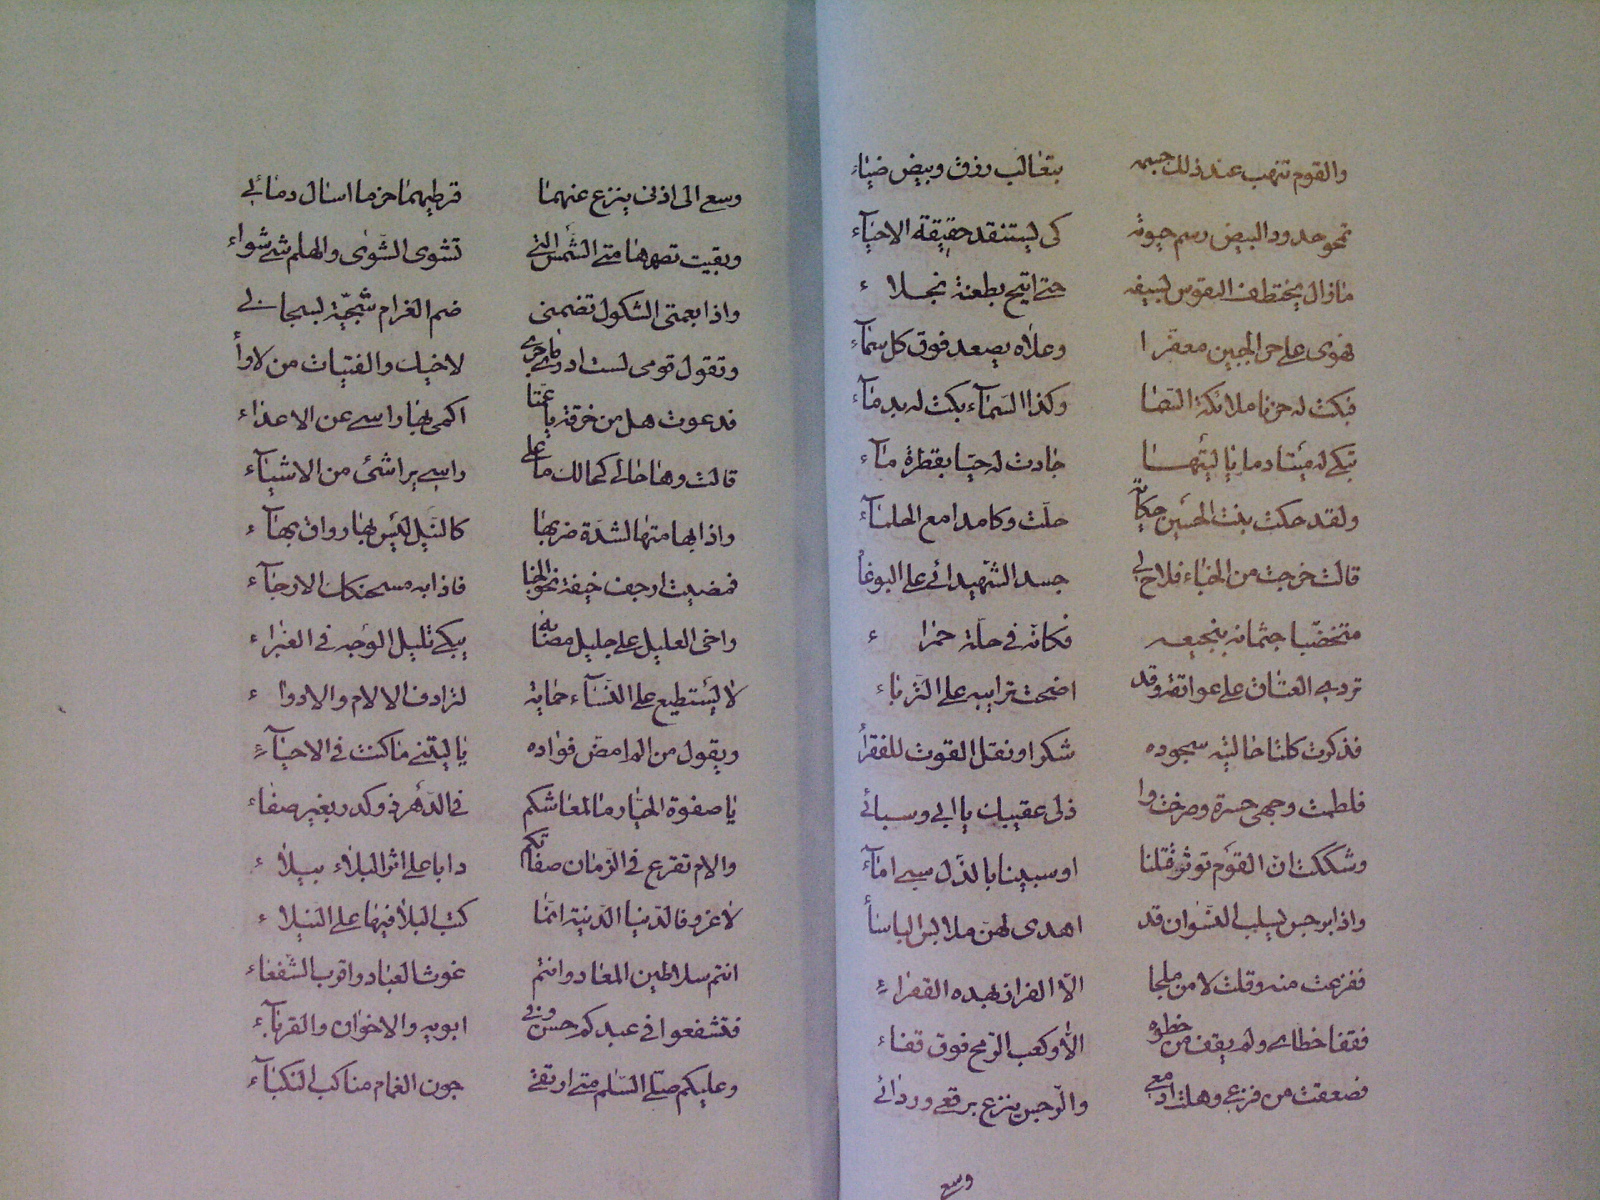 والقوم تنهب عند ذلك جسمه بتغالب زرق وبيض ضياء
نحو حدود البيض رسم حيوته كى يستنقد حقيقة الاحياء
ما زال يختطف النفوس لسيفه حتى اتيح بطعنة نجلاء
فهوى على حر الجبين معفرا وعلاه يصعد فوق كل سماء
فبكت له حزنا ملائكة القضا وكذا السماء بكت له بدماء
تبكى له ميتا دما يا ليتها جادت له حيا بقطرة ماء
ولقد حكت بنت الحسين حكاية حلت وكامدامع الحلناء
قالت خرجت من الخباء فلاح لى جسد الشهيد ابى على البوغاء
متخضبا جثمانه بنجيعه فكانه فى حلة حمراء
تردى العتاق على عواتقه وقد اضحت ترائبه على التربأ
فذكرت كلتا حالتيه سجوده شكرا ونقل القوت للفقرأ
فلطمت وجهى حسرة وصرخت وا ذلى عقيبك يا ابى وسبائى
وشككت ان القوم توثر قتلنا او سبينا بالذل سبى اماء
واذا برجس يسلب النسوان قد اهدى لهن ملابس الباسأ
ففزعت منه وقلت لا من ملجا الا الفرار بهذه القفراء
فقفا خطاى ولم يقف من خطوه الا وكعب الرمح فوق قفاء
فصعقت من فزعى وهلت ادمعى والرجس ينزع برقعى وردائى
وسع
وسعى الى اذنى ينزع عنهما قرطيهما خرما اسال دمائى
وبقيت تصهرنا متى الشمس التى تشوى الشوى والهام شى شواء
واذا بعمتى الثكول تضمنى ضم الغرام شجية لسجالى
وتقول قومى لست ادرى ما جرى لاخيك والفتيات من لاوأ
فدعوت هل من خرقة يا عمتا اكمى بها راسى عن الاعداء
قالت وها حالى كحالك ما على راسى يرا شئ من الاشياء
واذا بها متنها لشدة ضربها كالنيل ليس لها رواق بهاء
فمضيت ارجف خيفة نحو الخبا فاذا به مسحنكك الارجاء
واخى العليل على جليل مصابه يبكى تليل الوجه فى الغبراء
لا يستطيع على النساء حماية لترادف الالام والادواء
ويقول من الم امض فؤاده يا ليتنى ما كنت فى الاحياء
يا صفوة الجبار ما لمعاشكم فى الدهر ذو كدر بغير صفاء
والام تقرع فى الزمان صفاتكم دابا على اثر البلاء ببلاء
لا غرو فالدنيا الدنية انما كتب البلا فيها على النبلاء
انتم سلاطين المعاد وانتم غوث العباد واقرب الشفعاء
فتشفعوا فى عبدكم حسن وفى ابويه والاخوان والقرباء
وعليكم صلى السلم متى ارتقى جون الغمام مناكب النكباء